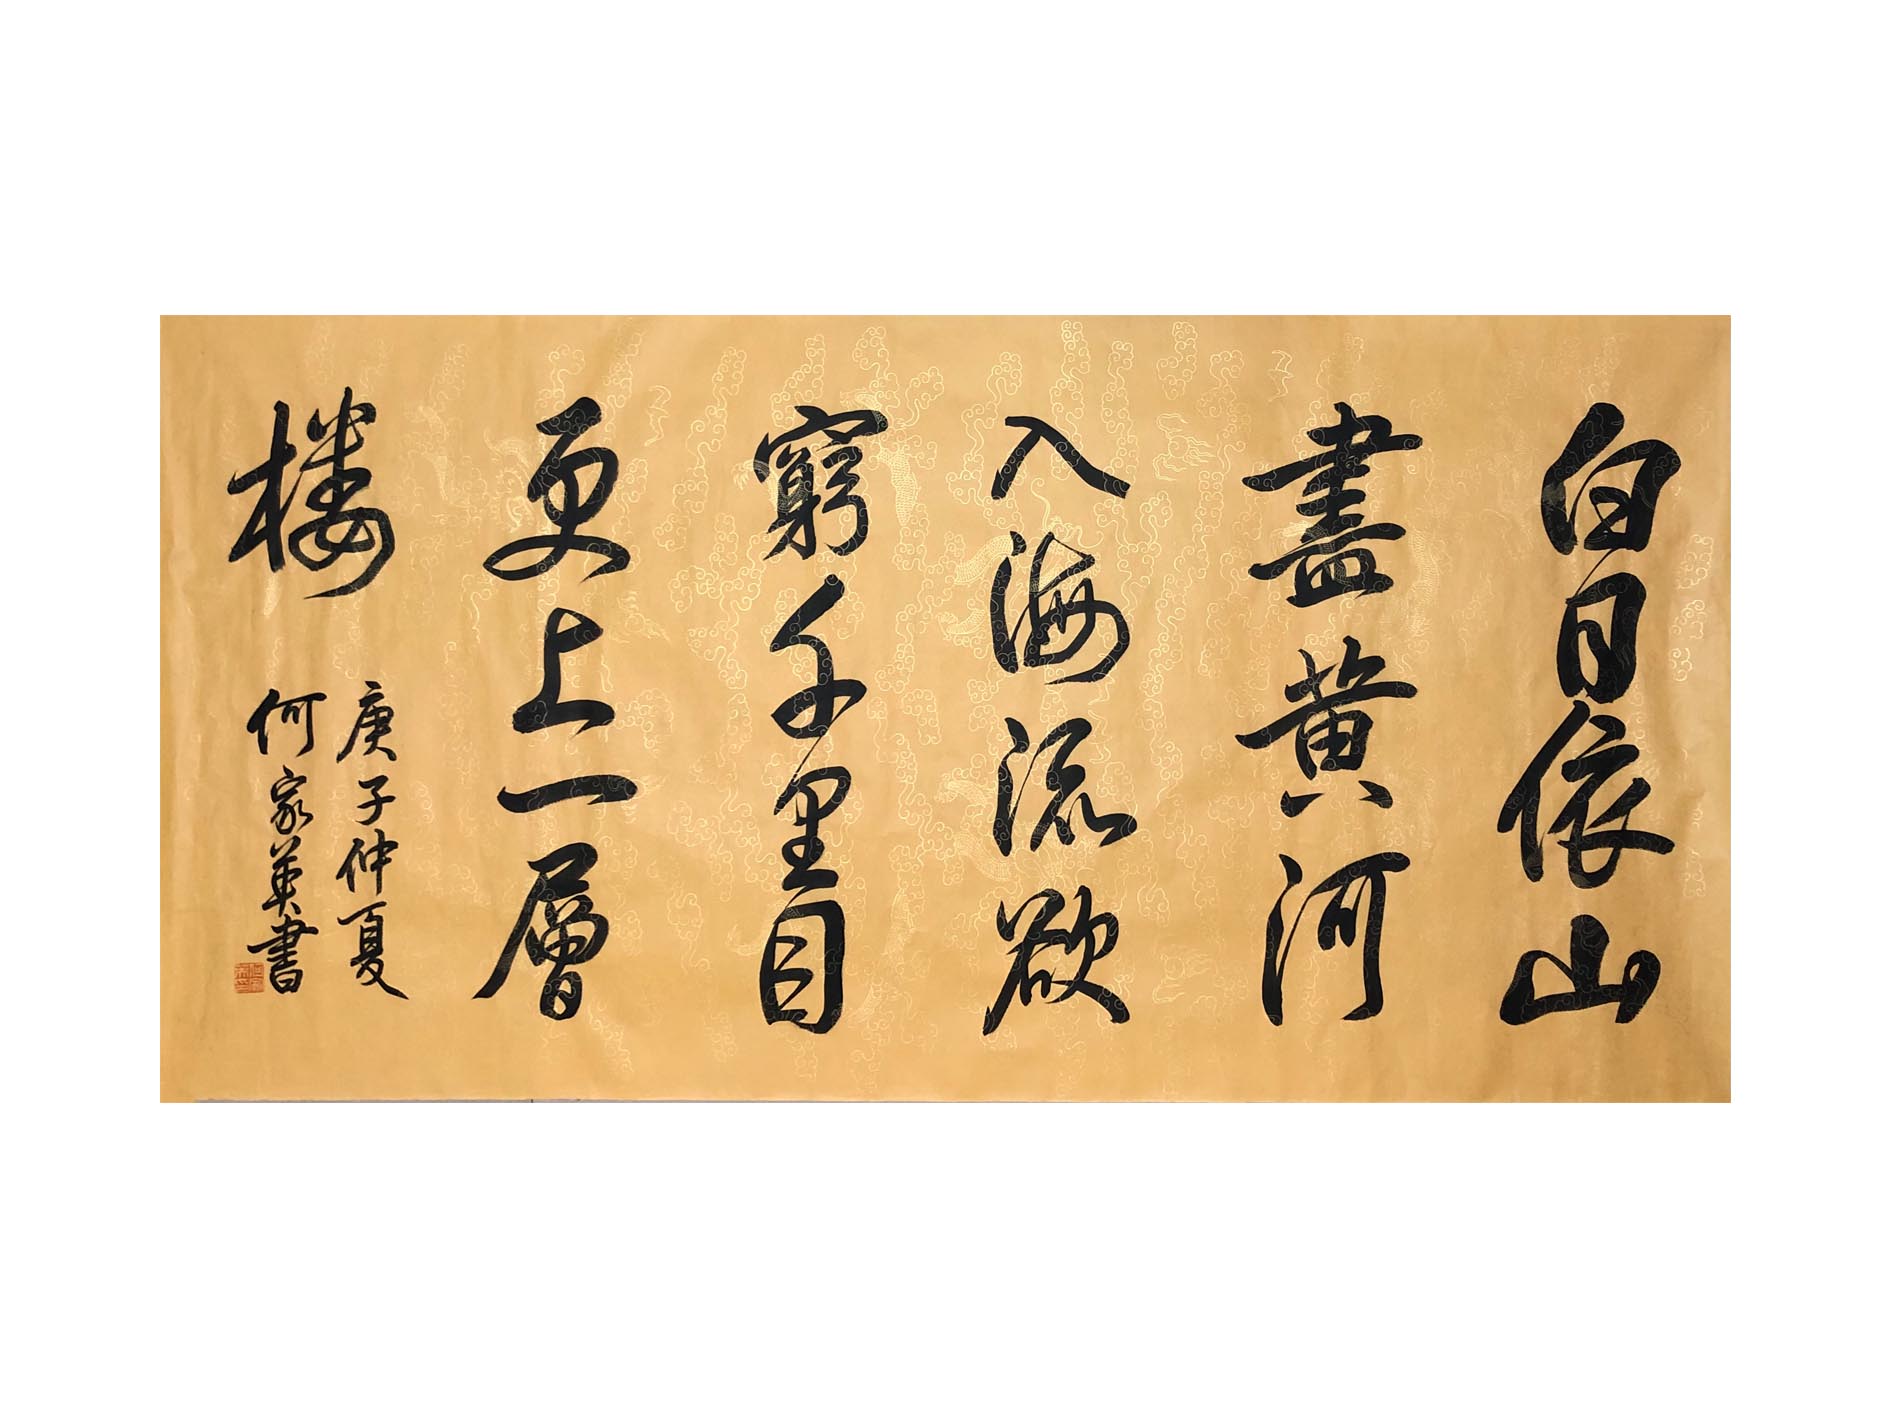 白日依山
盡黄河
入海流欲
窮千里目
更上一層
楼
庚子仲夏
何家英書